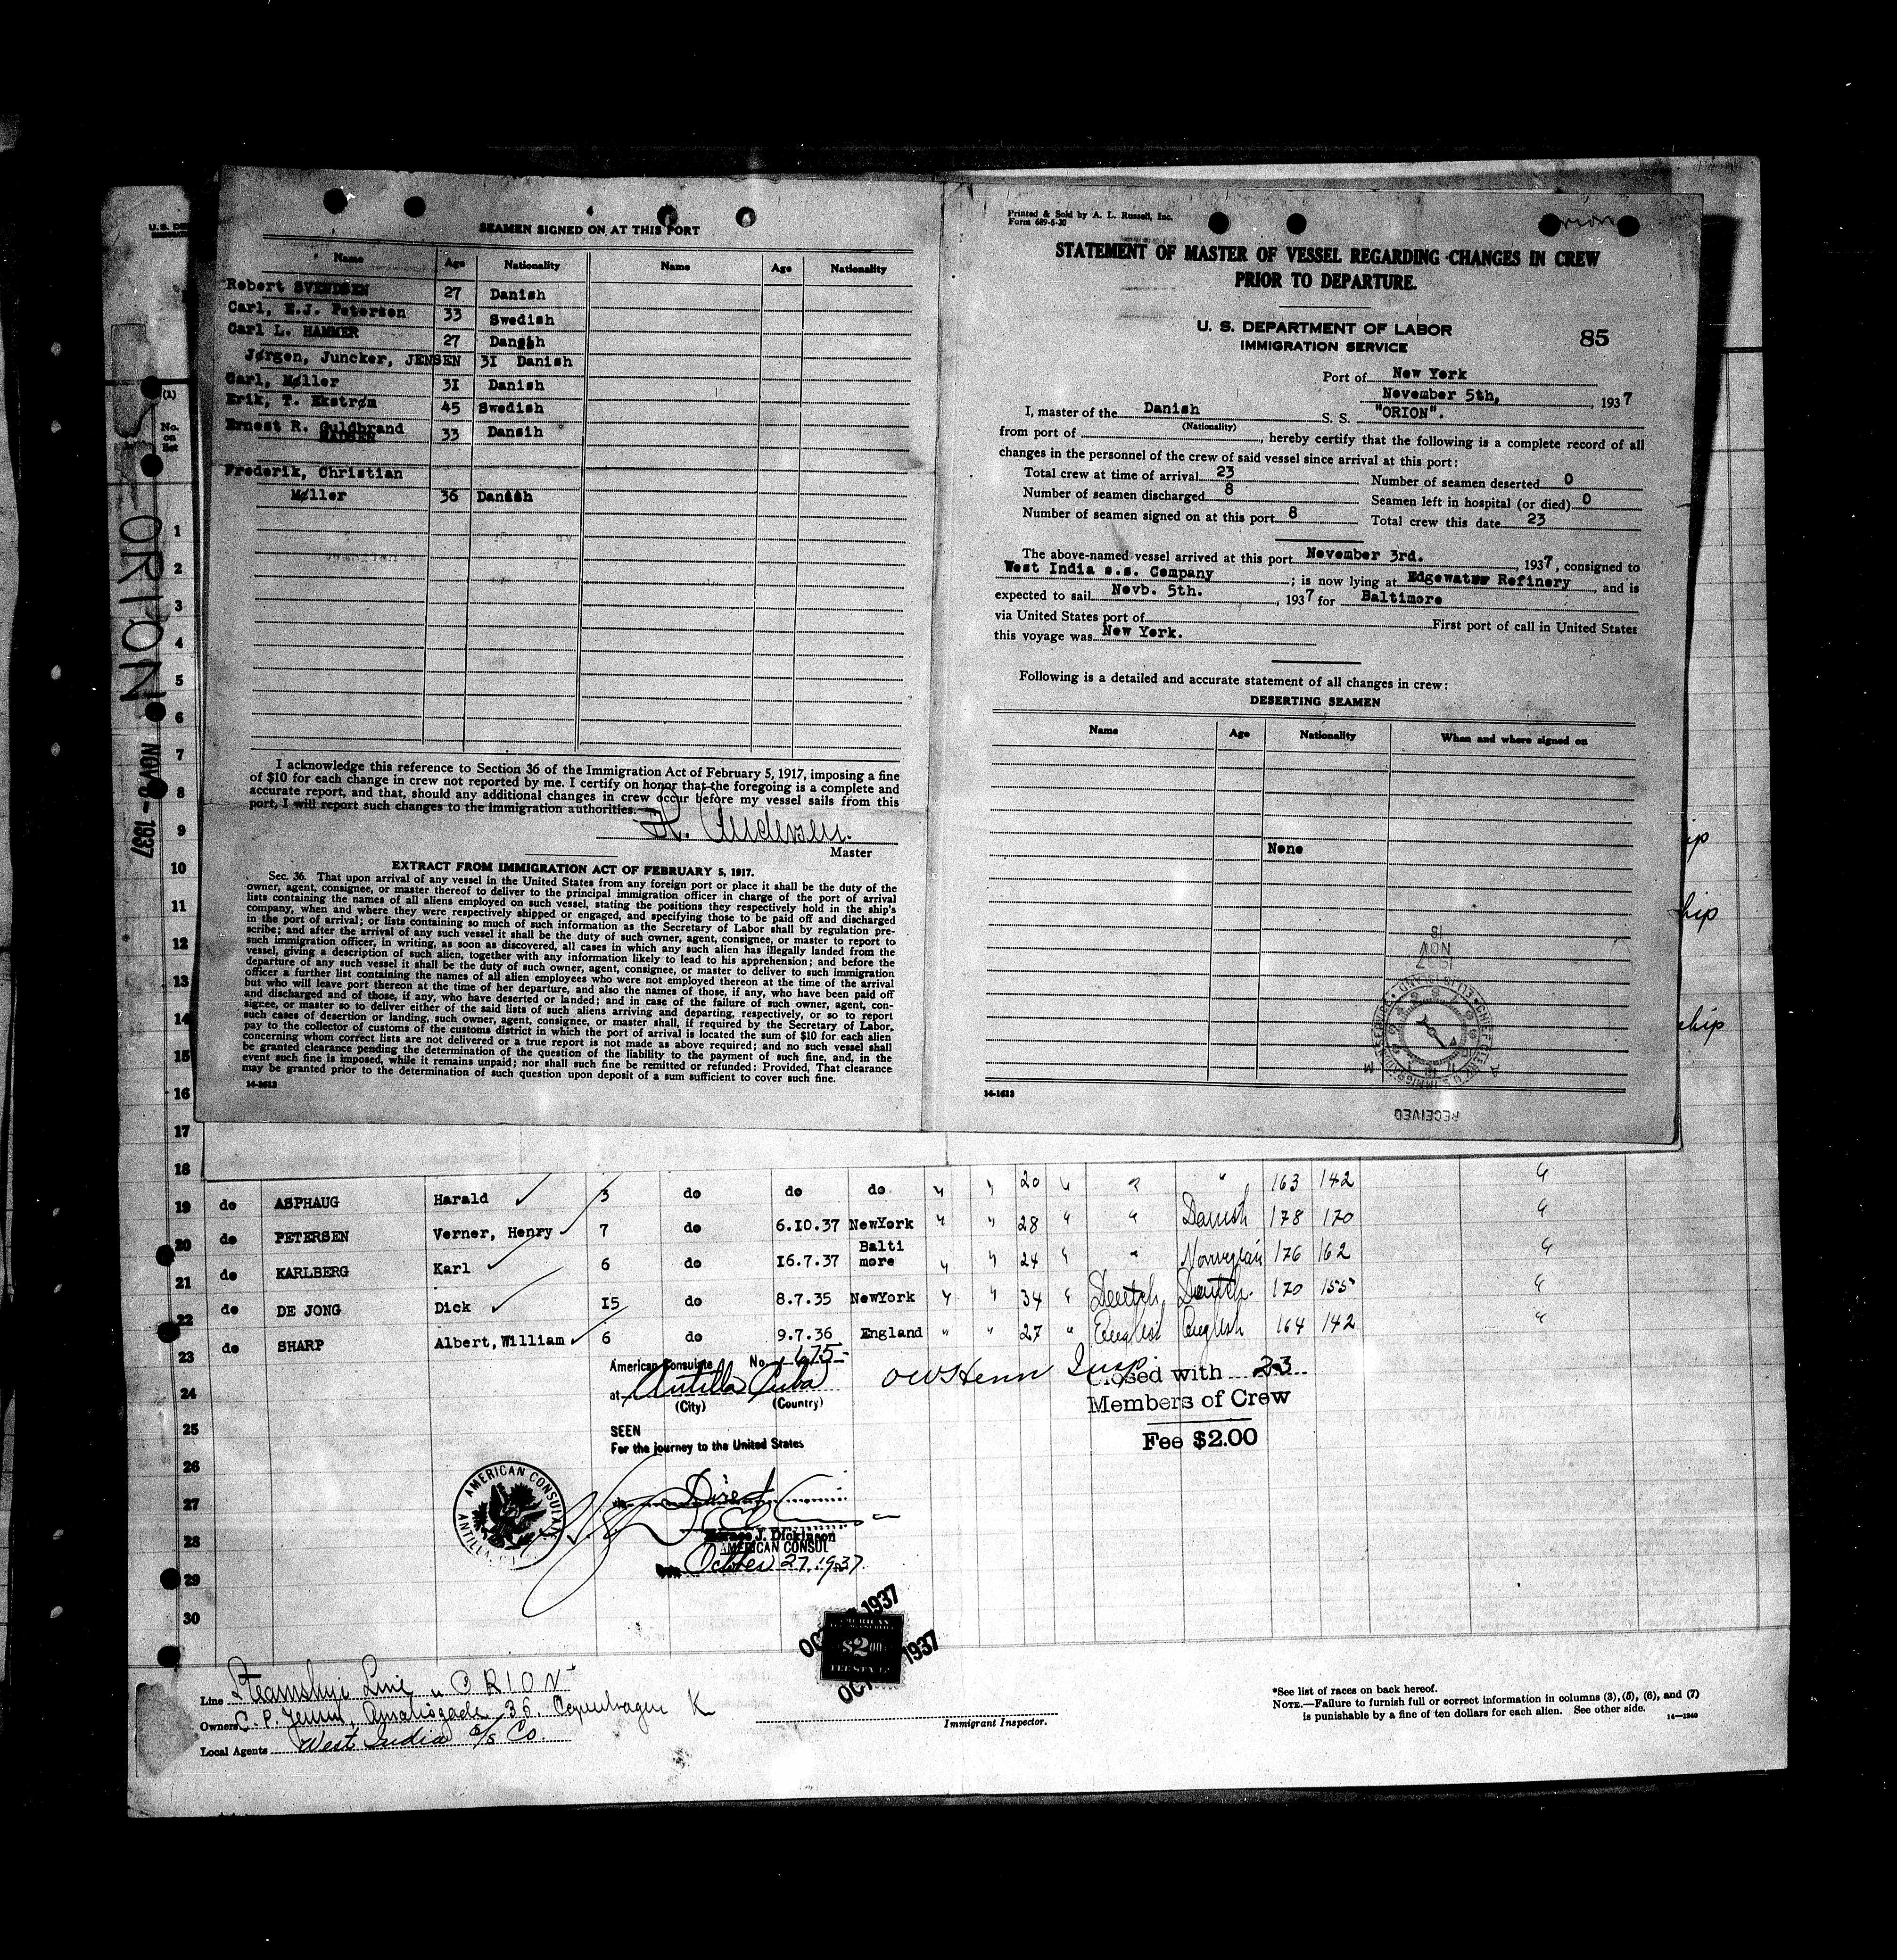 SEAMEN SIGNED ON AT THIS PORT
Name Age Nationality Name Age Nationality
Robert SVENDSEN 27 Danish
Carl, E.J. Petersen 33 Swedish
Carl L. HAMMER 27 Dansih
Jørgen, Juncker, JENSEN 31 Danish
Carl, Møller 31 Danish
Erik, T. Ekstrøm 45 Swedish
Ernest R. Guldbrand 33 Dansih
MADSEN
Frederik, Christian
Møller 36 Danish
I acknowledge this reference to Section 36 of the Immigration Act of February 5, 1917, imposing a fine
of $10 for each change in crew not reported by me. I certify on honor that the foregoing is a complete and
accurate report, and that, should any additional changes in crew occur before my vessel sails from this
port, I will report such changes to the immigration authorities.
Andersen.
Master
EXTRACT FROM IMMIGRATION ACT OF FEBRUARY 5, 1917.
Sec. 36. That upon arrival of any vessel in the United States from any foreign port or place it shall be the duty of the
owner, agent, consignee, or master thereof to deliver to the principal immigration officer in charge of the port of arrival
lists containing the names of all aliens employed on such vessel, stating the positions they respectively hold in the ship's
company, when and where they were respectively shipped or engaged, and specifying those to be paid off and discharged
in the port of arrival; or lists containing so much of such information as the Secretary of Labor shall by regulation pre-
scribe; and after the arrival of any such vessel it shall be the duty of such owner, agent, consignee, or master to report to
such immigration officer, in writing, as soon as discovered, all cases in which any such alien has illegally landed from the
vessel, giving a description of such alien, together with any information likely to lead to his apprehension; and before the
departure of any such vessel it shall be the duty of such owner, agent, consignee, or master to deliver to such immigration
officer a further list containing the names of all alien employees who were not employed thereon at the time of the arrival
but who will leave port thereon at the time of her departure, and also the names of those, if any, who have been paid off
and discharged and of those, if any, who have deserted or landed; and in case of the failure of such owner, agent, con-
signee, or master so to deliver either of the said lists of such aliens arriving and departing, respectively, or so to report
such cases of desertion or landing, such owner, agent, consignee, or master shall, if required by the Secretary of Labor,
pay to the collector of customs of the customs district in which the port of arrival is located the sum of $10 for each alien
concerning whom correct lists are not delivered or a true report is not made as above required; and no such vessel shall
be granted clearance pending the determination of the question of the liability to the payment of such fine, and, in the
event such fine is imposed, while it remains unpaid; nor shall such fine be remitted or refunded: Provided, That clearance
may be granted prior to the determination of such question upon deposit of a sum sufficient to cover such fine.
14-1613
Printed & Sold by A. L. Russell, Inc.
Form 689-6-30
Orion
STATEMENT OF MASTER OF VESSEL REGARDING CHANGES IN CREW
PRIOR TO DEPARTURE.
U. S. DEPARTMENT OF LABOR
IMMIGRATION SERVICE
85
Port of New York
November 5th, 1937
I, master of the Danish S. S. "ORION".
(Nationality)
from port of , hereby certify that the following is a complete record of all
changes in the personnel of the crew of said vessel since arrival at this port:
Total crew at time of arrival 23 Number of seamen deserted 0
Number of seamen discharged 8 Seamen left in hospital (or died) 0
Number of seamen signed on at this port 8 Total crew this date 23
The above-named vessel arrived at this port November 3rd. , 1937, consigned to
West India s.s. Company ; is now lying at Edgewater Refinery , and is
expected to sail Novb. 5th. , 1937 for Baltimore
via United States port of First port of call in United States
this voyage was New York.
Following is a detailed and accurate statement of all changes in crew:
DESERTING SEAMEN
Name Age Nationality When and where signed on
None
RECEIVED
NOV
1937
CHIEF CLERK U.S. IMMIGRATION SERVICE
ELLIS ISLAND
A M
14-1613
U. S. DE
(1)
No. on list
ORION
NOV 3 - 1937
1
2
3
4
5
6
7
8
9
10
11
12
13
14
15
16
17
18
ip
hip
ship
20 " " " 163 142 "
19 do ASPHAUG Harald 3 do do do
20 do PETERSEN Verner, Henry 7 do 6.10.37 NewYork " " 28 " " Danish 178 170 "
21 do KARLBERG Karl 6 do 16.7.37 Balti more " " 24 " " Norwegian 176 162 "
22 do DE JONG Dick 15 do 8.7.35 NewYork " " 34 " Deutch Deutch. 170 155 "
23 do SHARP Albert,William 6 do 9.7.36 England " " 27 " English English 164 142 "
24
25
26
27
28
29
30
American Consulate No. 675-
at Antilla Cuba
(City) (Country)
SEEN
For the journey to the United States
Direct
Horace J. Dickinson
AMERICAN CONSUL
October 27, 1937.
AMERICAN CONSULATE
ANTILLA
Insp.
Closed with 23
Members of Crew
Fee $2.00
OCT 1937
OCT 1937
AMERICAN
$2.00
FEE STAMP
Line Steamship Line "ORION"
Owners C. P. Jensen, Amaliegade 36. Copenhagen K
Local Agents West India S/S Co.
Immigrant Inspector.
*See list of races on back hereof.
NOTE.—Failure to furnish full or correct information in columns (3), (5), (6), and (7)
is punishable by a fine of ten dollars for each alien. See other side.
14—1240